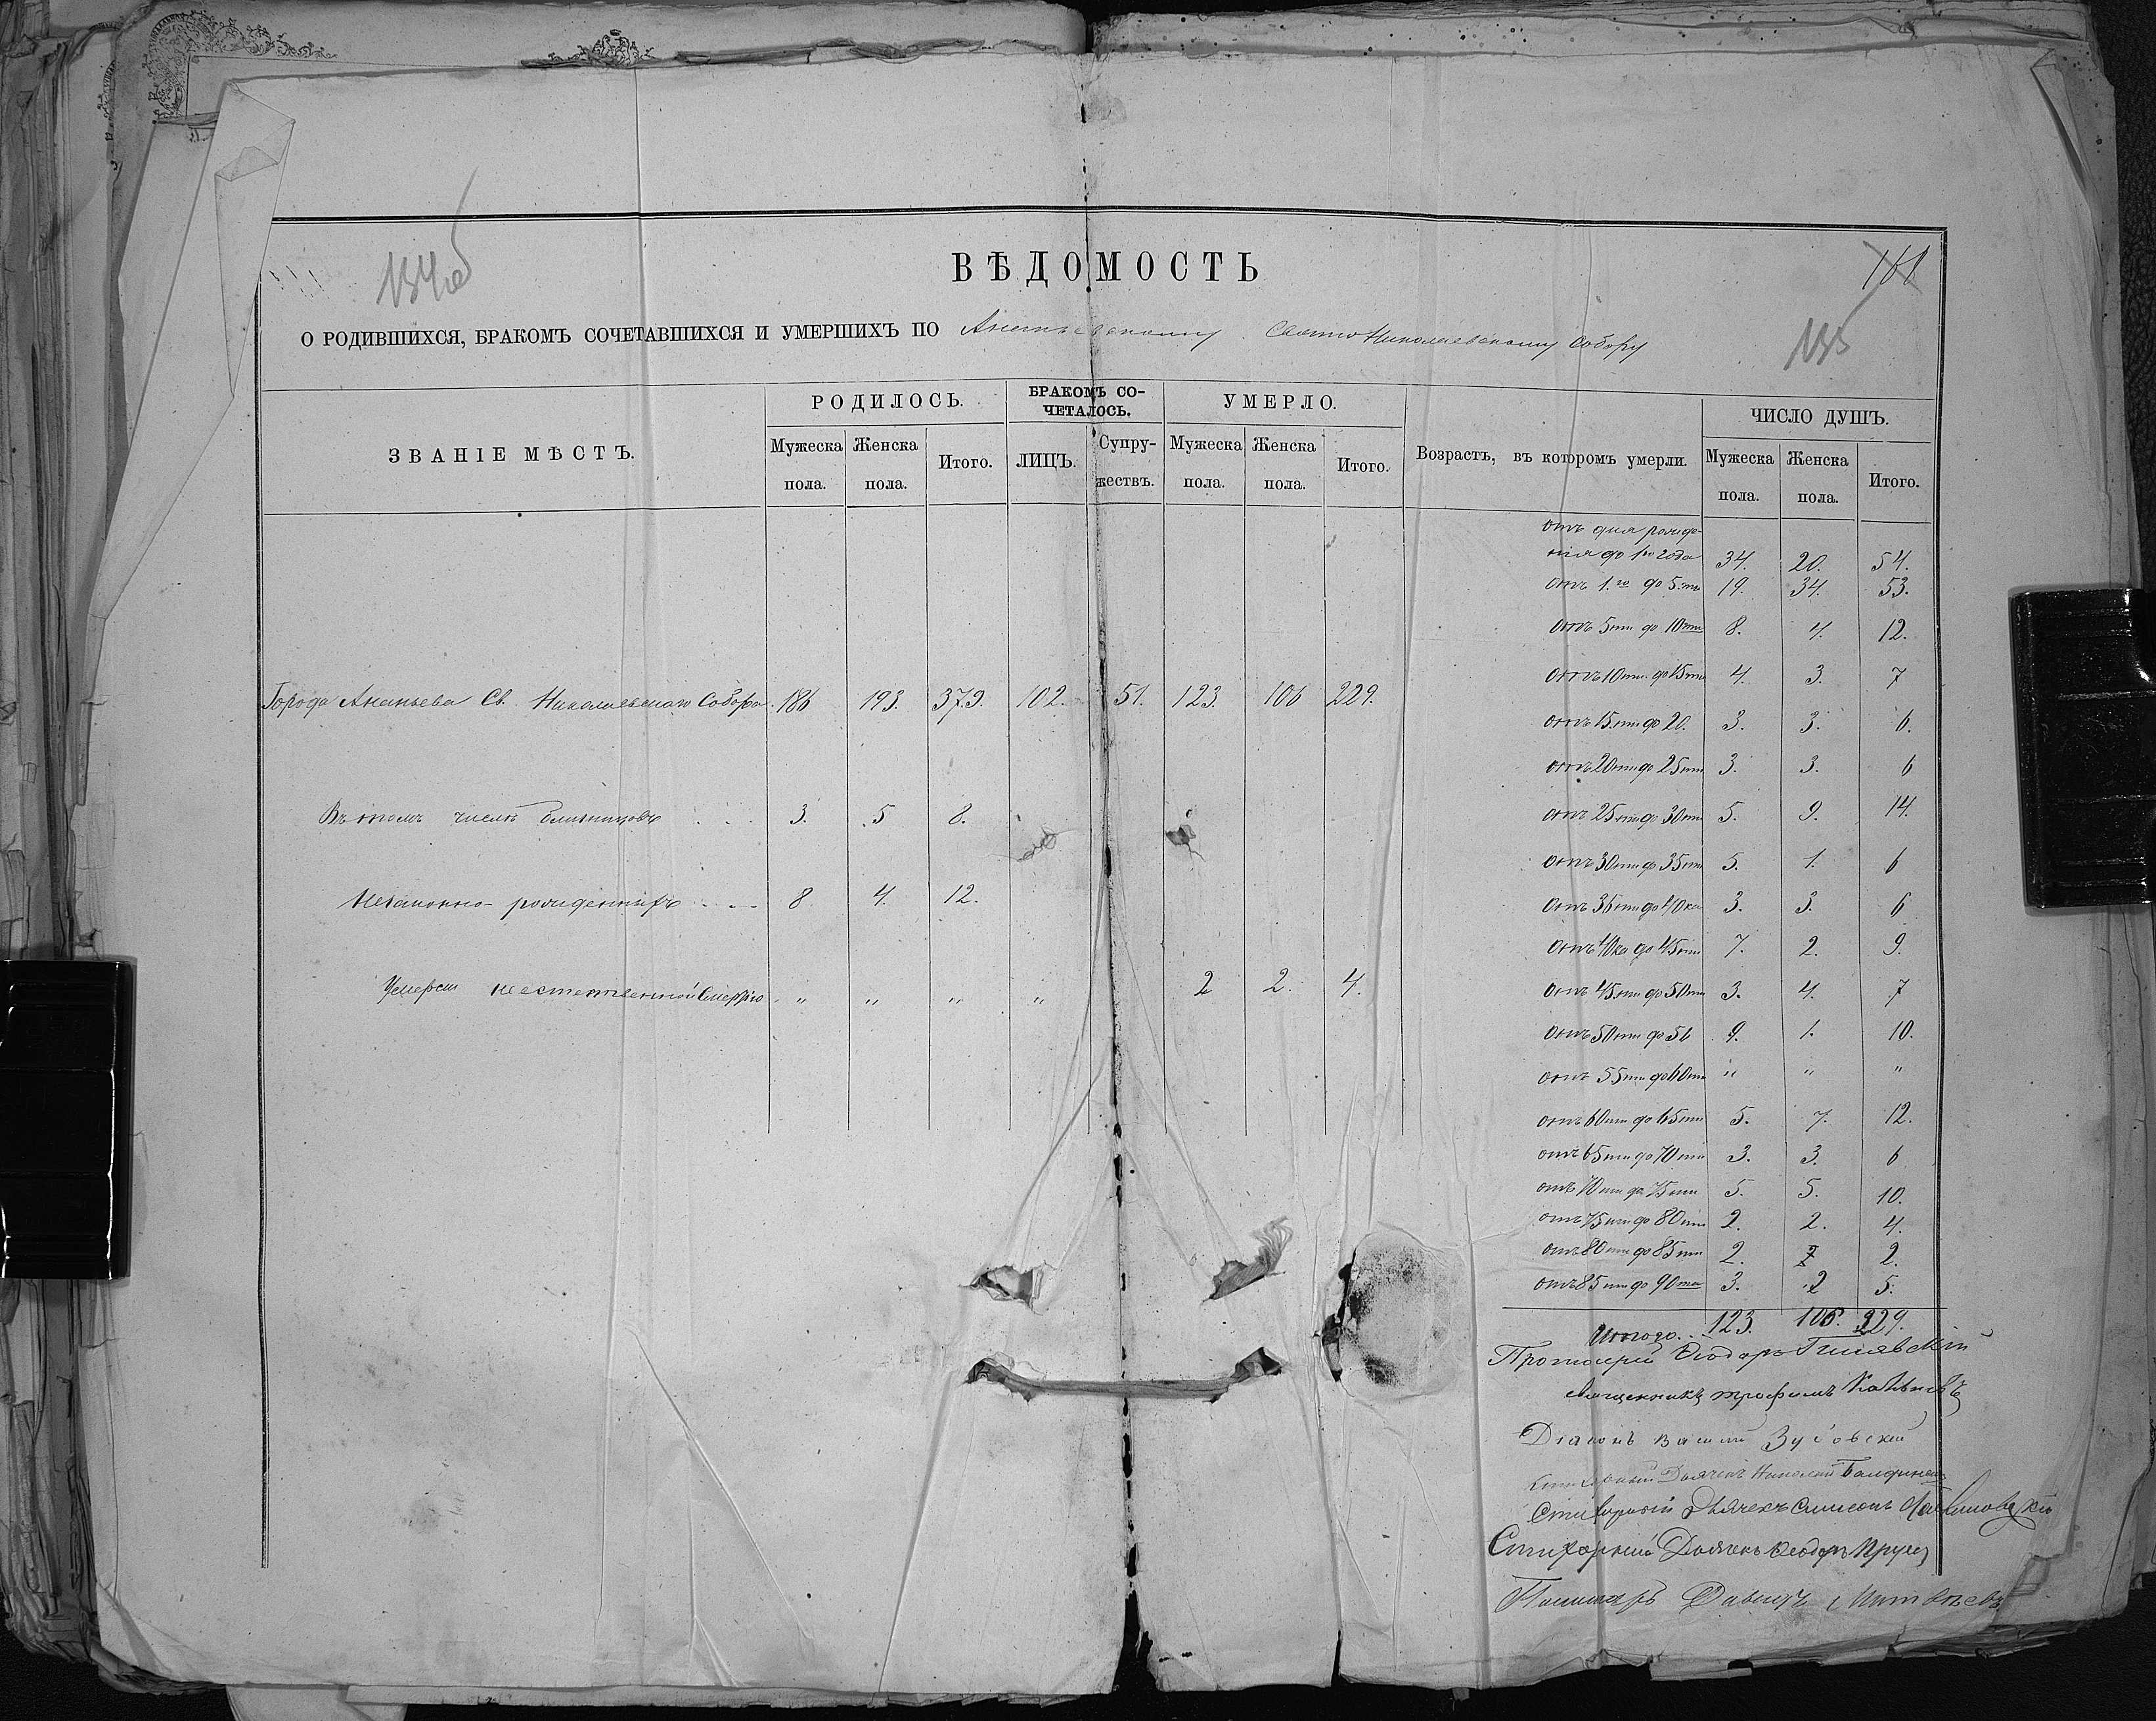 134об
ВѢДОМОСТЬ
161
135
О РОДИВШИХСЯ, БРАКОМЪ СОЧЕТАВШИХСЯ И УМЕРШИХЪ ПО Ананьевскому Свято Николаевскому Собору
ЗВАНІЕ МѢСТЪ. РОДИЛОСЬ. БРАКОМЪ СО-ЧЕТАЛОСЬ. УМЕРЛО. Возрастъ, въ которомъ умерли. ЧИСЛО ДУШЪ.
Мужеска пола. Женска пола. Итого. ЛИЦЪ. Супру-жествъ. Мужеска пола. Женска пола. Итого. Мужеска пола. Женска пола. Итого.
Города Ананьева Св. Николаевскаго Собора. 186 193. 379. 102. 51. 123. 106 229.
Въ томъ числѣ близнецовъ 3. 5 8.
Незаконно-рожденныхъ 8 4. 12.
Умерли неестественной смертію " " " " 2 2. 4.
отъ дня рожде-
нія до 1го года 34. 20. 54.
отъ 1.го до 5.ти 19. 34. 53.
отъ 5ти до 10ти 8. 4. 12.
отъ 10ти до 15ти 4. 3. 7
отъ 15.ти до 20. 3. 3. 6.
отъ 20ти до 25ти 3. 3. 6
отъ 25ти до 30ти 5. 9. 14.
отъ 30ти до 35ти 5. 1. 6
отъ 35ти до 40ка 3. 3. 6
отъ 40ка до 45ти 7. 2. 9.
отъ 45ти до 50ти 3. 4. 7
отъ 50ти до 55 9. 1. 10.
отъ 55ти до 60ти " " "
отъ 60ти до 65ти 5. 7. 12.
отъ 65ти до 70ти 3. 3. 6
отъ 70ти до 75ти 5. 5. 10.
отъ 75ти до 80ти 2. 2. 4.
отъ 80ти до 85ти 2. 2.
отъ 85ти до 90та 3. 2 5.
Итого. 123. 106. 229.
Протоіерей Ѳеодоръ
священникъ Трофимъ
Діаконъ Василій Зубовскій
Стихарный Дьячекъ Николай
Стихарный Дьячекъ Симеонъ
Стихарный Дьячекъ Ѳеодоръ
Пономарь Давидъ